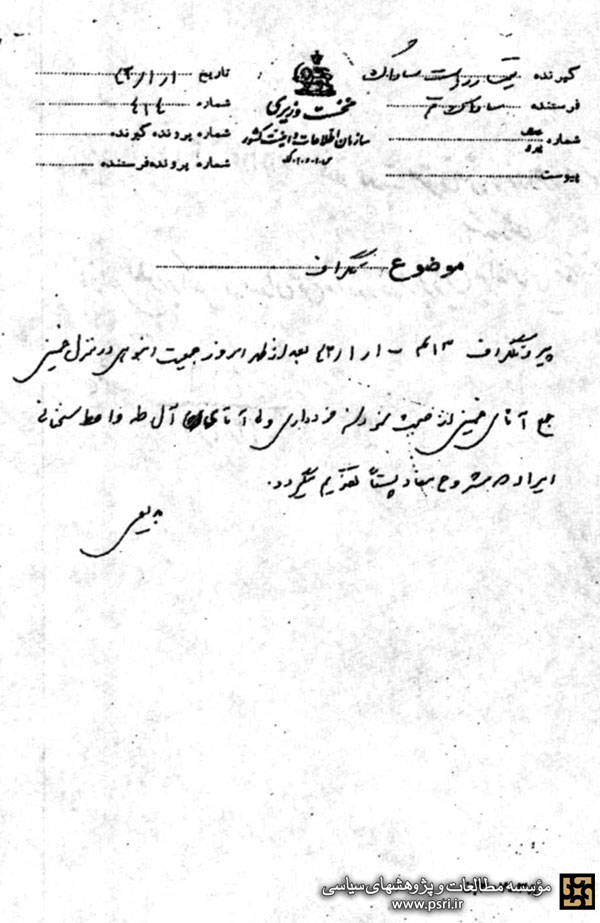 گیرنده تیمسار ریاست ساواک
فرستنده ساواک قم
شماره
پیوست
نخست وزیری
سازمان اطلاعات و امنیت کشور
س.ا.و.ا.ک
تاریخ ۴۲/۱/۱
شماره ۴۱۴
شماره پرونده گیرنده
شماره پرونده فرستنده
موضوع تلگراف
پیرو تلگراف ۴۱۳ - ۴۲/۱/۱ بعد از ظهر امروز جمعیت انبوهی در منزل خمینی
جمع آقای خمینی از صحبت نمودن خودداری ولی آقای آل طه واعظ سخنانی
ایراد که مشروح مفاد پستاً تقدیم میگردد.
بدیعی
مؤسسه مطالعات و پژوهشهای سیاسی
www.psri.ir